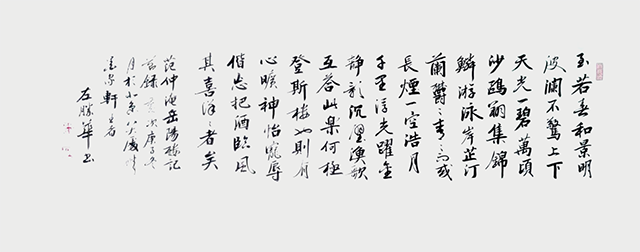 至若春和景明
波澜不驚上下
天光一碧萬頃
沙鷗翔集錦
鱗游泳岸芷汀
蘭欝〻青〻而或
長煙一空浩月
千里浮光躍金
静影沉璧漁歌
互答此樂何極
登斯樓也則有
心曠神怡寵辱
偕忘把酒臨風
其喜洋〻者矣
范仲淹岳陽樓記
節録 庚子冬
月於北京
軒
左勝華書